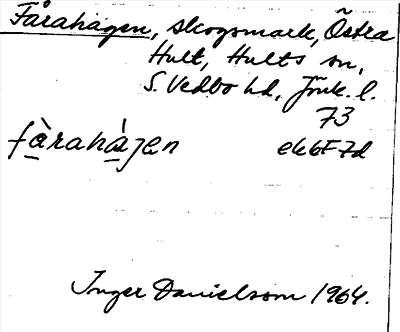 Fårahagen, skogsmark, Östra
Hult, Hults sn,
S. Vedbo hd, Jönk. l.
73
fàrahá̱gen ek6F7d
Inger Danielsson 1964.